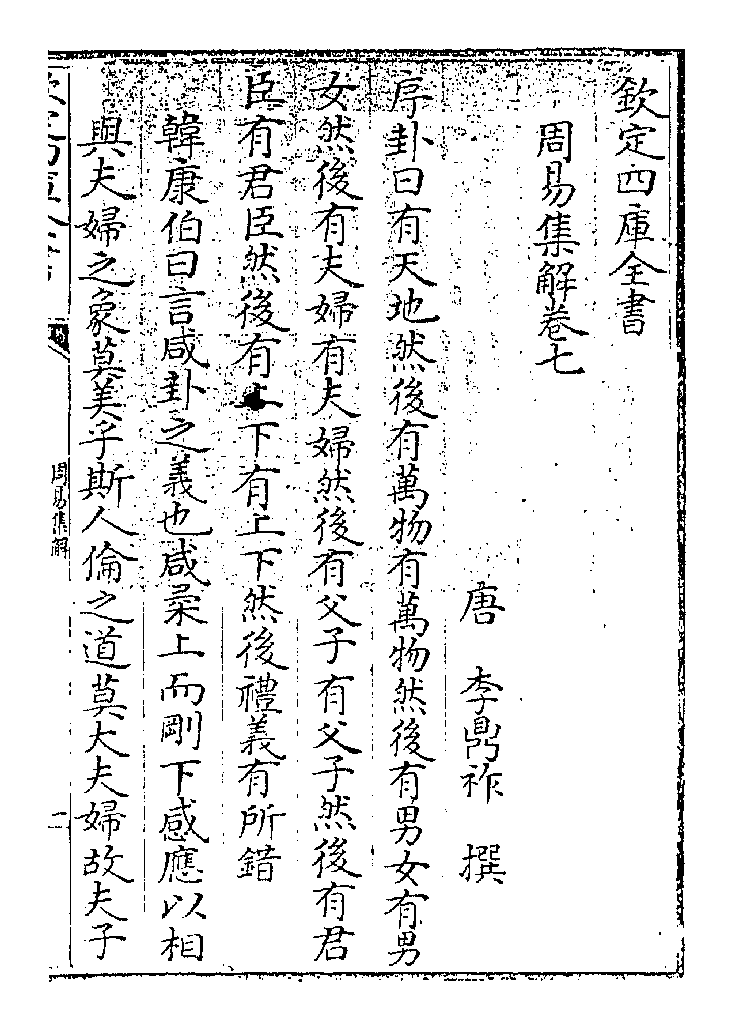 欽定四庫全書
周易集解卷七
唐 李鼎祚 撰
序卦曰有天地然後有萬物有萬物然後有男女有男
女然後有夫婦有夫婦然後有父子有父子然後有君
臣有君臣然後有上下有上下然後禮義有所錯
韓康伯曰言咸卦之義也咸柔上而剛下感應以相
與夫婦之象莫美乎斯人倫之道莫大夫婦故夫子
周易集解